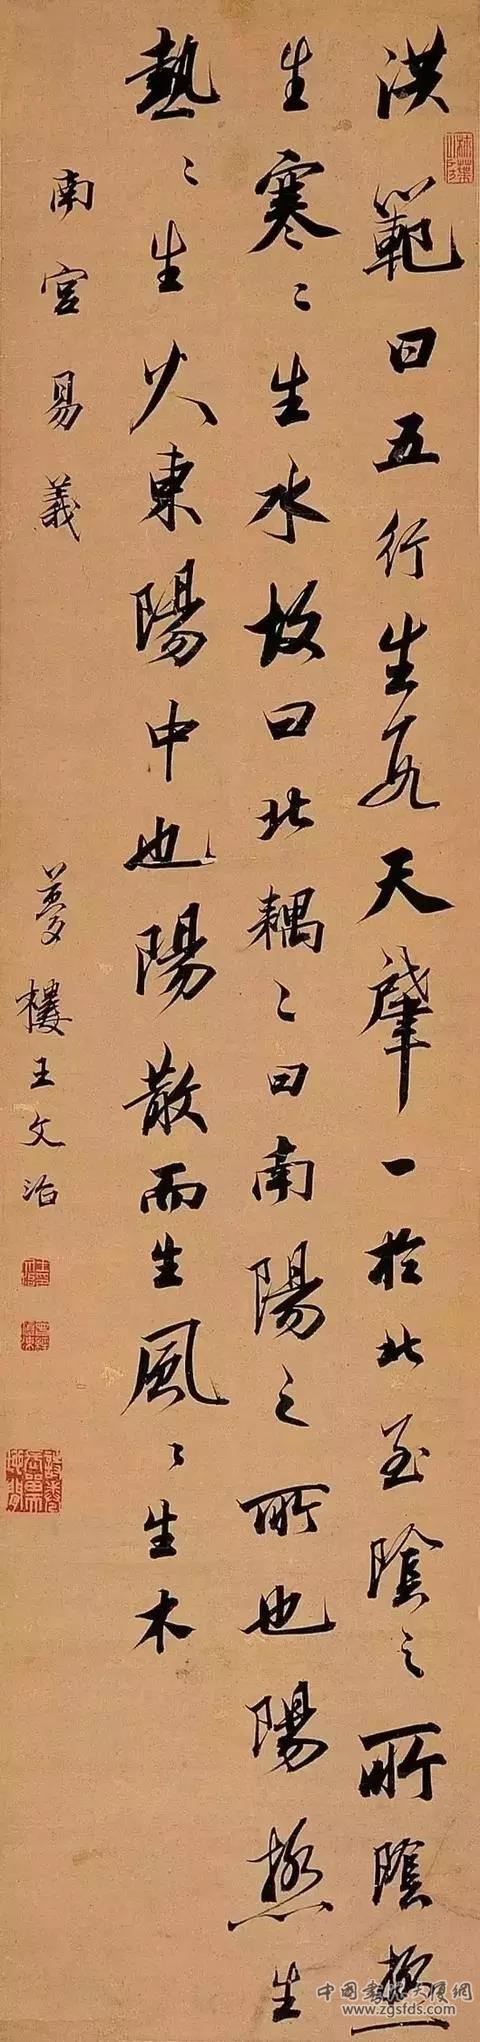 洪範曰五行生數天肇一於北至陰之所陰極
生寒〻生水故曰北耦〻曰南陽之所也陽極生
熱〻生火東陽中也陽散而生風〻生木
南宮易義
夢樓王文治
中國書法大廈網
www.zgsfds.com